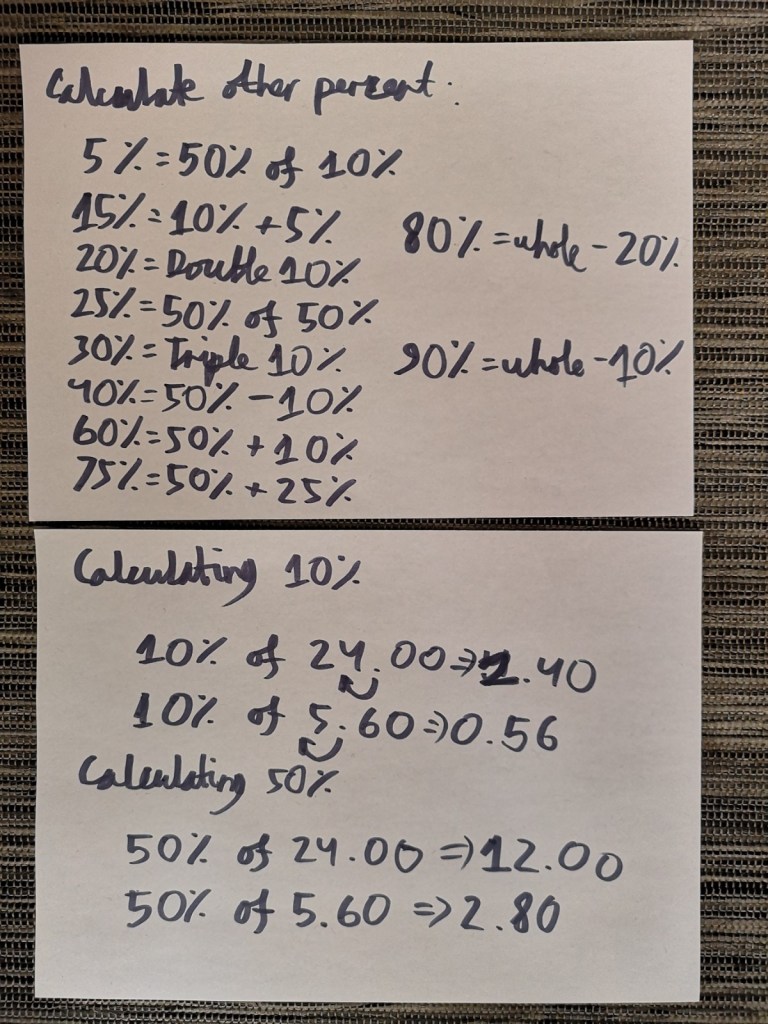 Calculate other percent:
5% = 50% of 10%
15% = 10% + 5%
20% = Double 10%
25% = 50% of 50%
30% = Triple 10%
40% = 50% - 10%
60% = 50% + 10%
75% = 50% + 25%
80% = whole - 20%
90% = whole - 10%
Calculating 10%
10% of 24.00 => 2.40
10% of 5.60 => 0.56
Calculating 50%
50% of 24.00 => 12.00
50% of 5.60 => 2.80